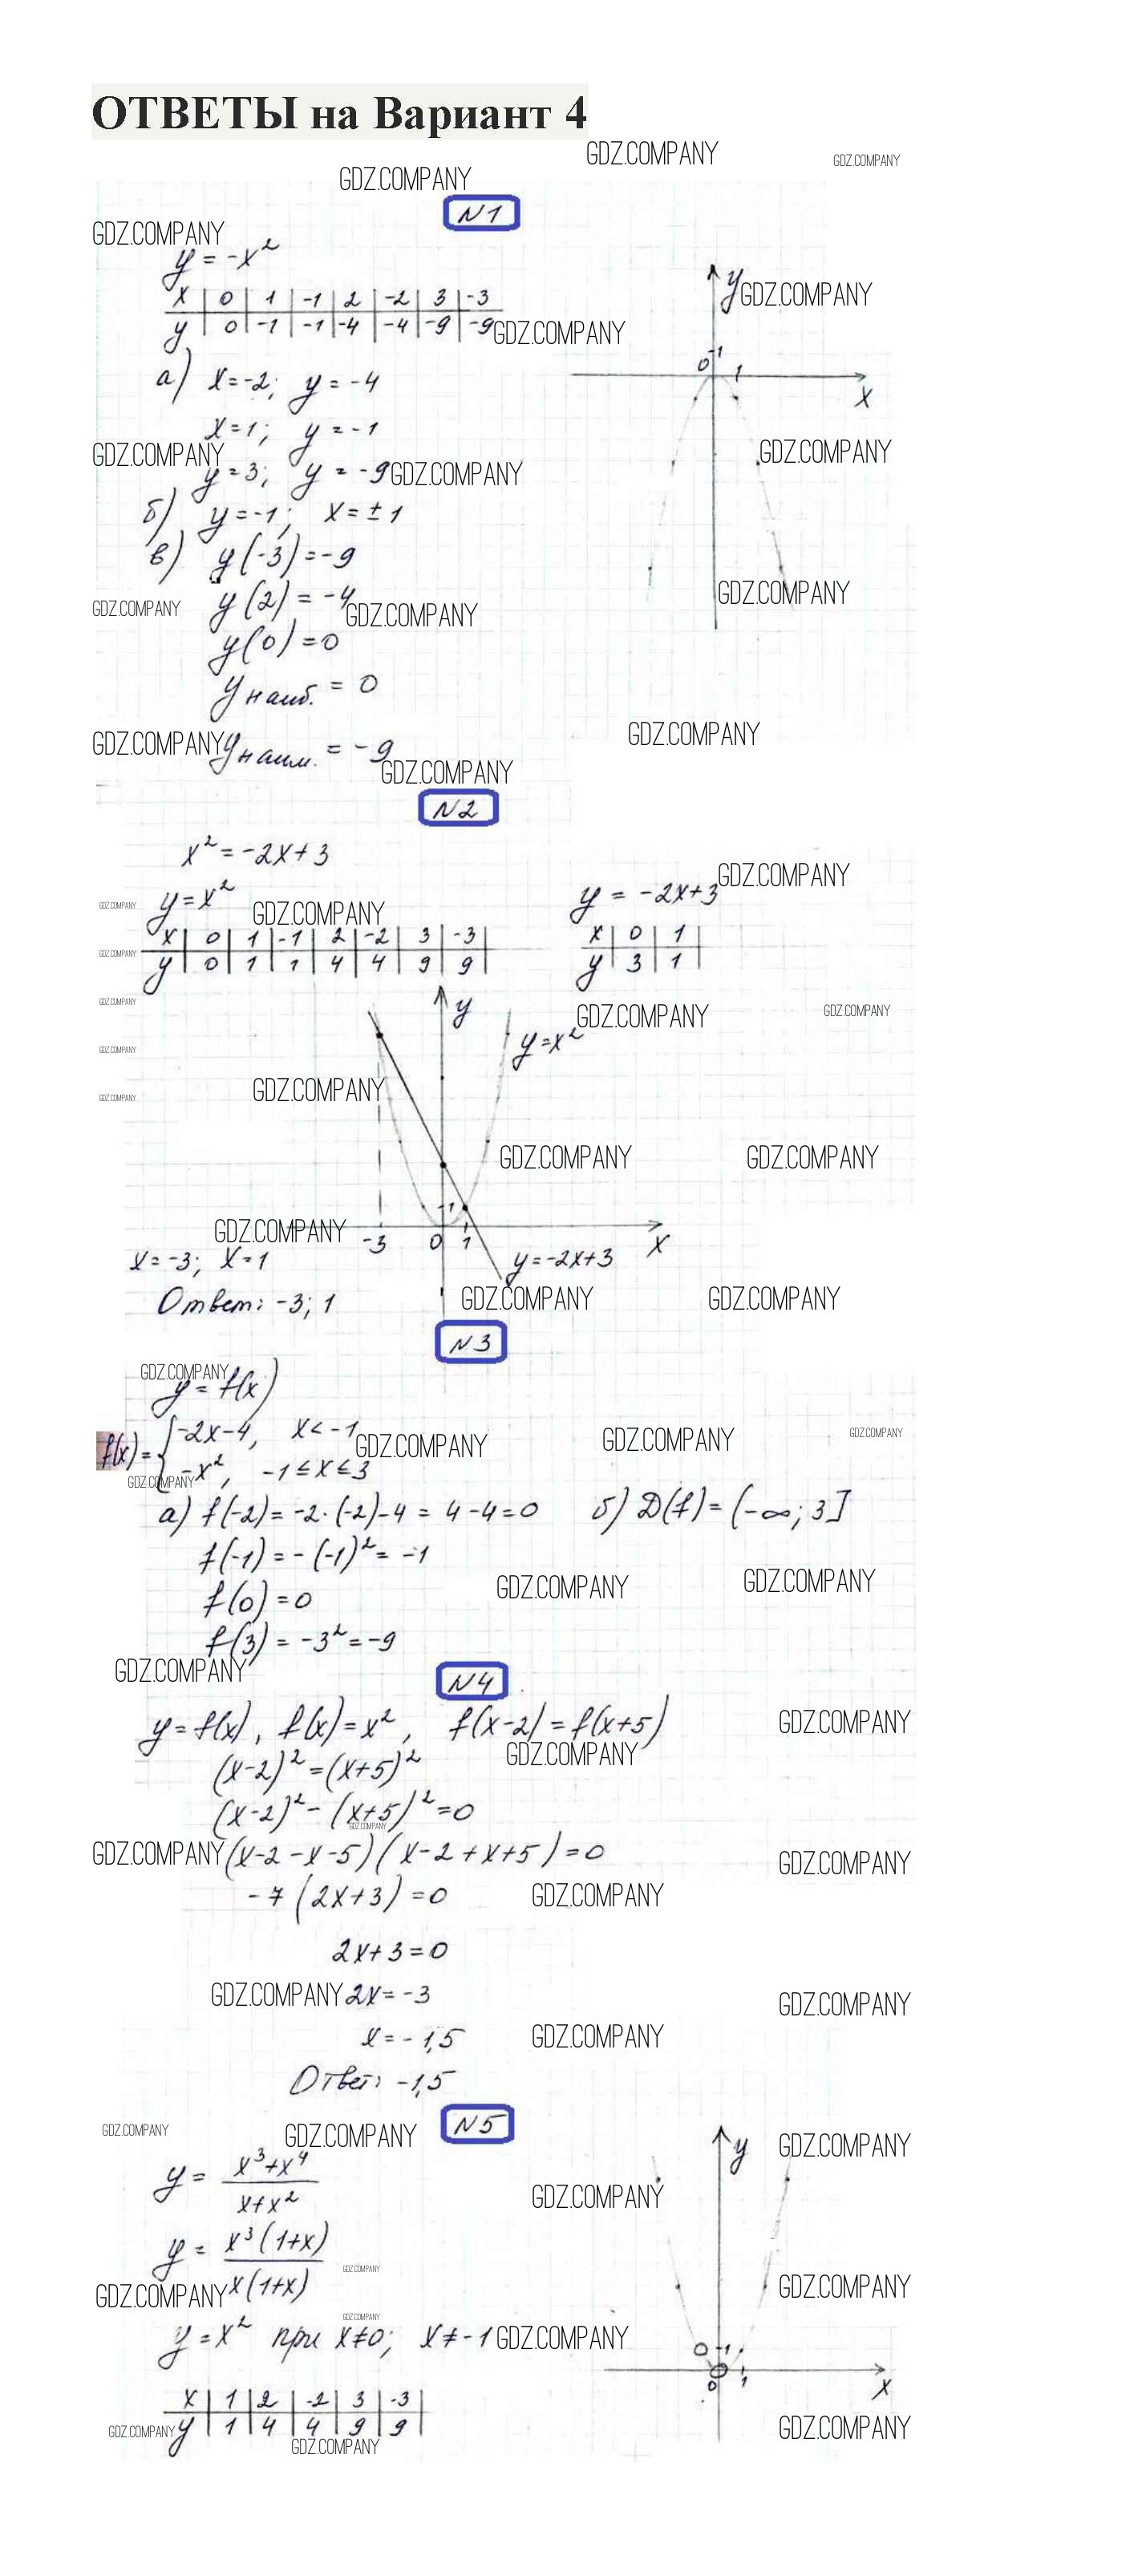 ОТВЕТЫ на Вариант 4
GDZ.COMPANY GDZ.COMPANY
GDZ.COMPANY
N1
GDZ.COMPANY
y = -x²
x | 0 | 1 | -1 | 2 | -2 | 3 | -3
y | 0 | -1 | -1 | -4 | -4 | -9 | -9 GDZ.COMPANY
y GDZ.COMPANY
0 -1 1 x
а) x = -2; y = -4
x = 1; y = -1
GDZ.COMPANY GDZ.COMPANY
y = 3; y = -9 GDZ.COMPANY
б) y = -1; x = ± 1
в) y(-3) = -9
GDZ.COMPANY
y(2) = -4
GDZ.COMPANY GDZ.COMPANY
y(0) = 0
y наиб. = 0
GDZ.COMPANY
GDZ.COMPANY y наим. = -9
GDZ.COMPANY
N2
x² = -2x + 3
GDZ.COMPANY
y = x² y = -2x+3
GDZ.COMPANY GDZ.COMPANY
x | 0 | 1 | -1 | 2 | -2 | 3 | -3 x | 0 | 1
GDZ.COMPANY
y | 0 | 1 | 1 | 4 | 4 | 9 | 9 y | 3 | 1
GDZ.COMPANY
y GDZ.COMPANY GDZ.COMPANY
y = x²
GDZ.COMPANY
GDZ.COMPANY
GDZ.COMPANY
GDZ.COMPANY GDZ.COMPANY
-1
GDZ.COMPANY
-3 0 1 x
x = -3; x = 1 y = -2x+3
Ответ: -3; 1 GDZ.COMPANY GDZ.COMPANY
N3
GDZ.COMPANY
y = f(x)
f(x) = { -2x-4, x < -1
-x², -1 ≤ x ≤ 3
GDZ.COMPANY GDZ.COMPANY GDZ.COMPANY
GDZ.COMPANY
а) f(-2) = -2·(-2)-4 = 4-4=0 б) D(f) = (-∞; 3]
f(-1) = -(-1)² = -1
GDZ.COMPANY GDZ.COMPANY
f(0) = 0
f(3) = -3² = -9
GDZ.COMPANY
N4
y = f(x), f(x) = x², f(x-2) = f(x+5)
GDZ.COMPANY
GDZ.COMPANY
(x-2)² = (x+5)²
(x-2)² - (x+5)² = 0
GDZ.COMPANY
GDZ.COMPANY (x-2-x-5)(x-2+x+5) = 0
GDZ.COMPANY
-7(2x+3) = 0 GDZ.COMPANY
2x+3 = 0
GDZ.COMPANY 2x = -3
GDZ.COMPANY
x = -1,5 GDZ.COMPANY
Ответ: -1,5
N5
GDZ.COMPANY GDZ.COMPANY
y GDZ.COMPANY
y = x³+x⁴
x+x²
GDZ.COMPANY
y = x³(1+x)
x(1+x)
GDZ.COMPANY
GDZ.COMPANY GDZ.COMPANY
GDZ.COMPANY
y = x² при x≠0; x≠-1 GDZ.COMPANY
0 -1
0 1 x
x | 1 | 2 | -2 | 3 | -3
y | 1 | 4 | 4 | 9 | 9
GDZ.COMPANY GDZ.COMPANY
GDZ.COMPANY